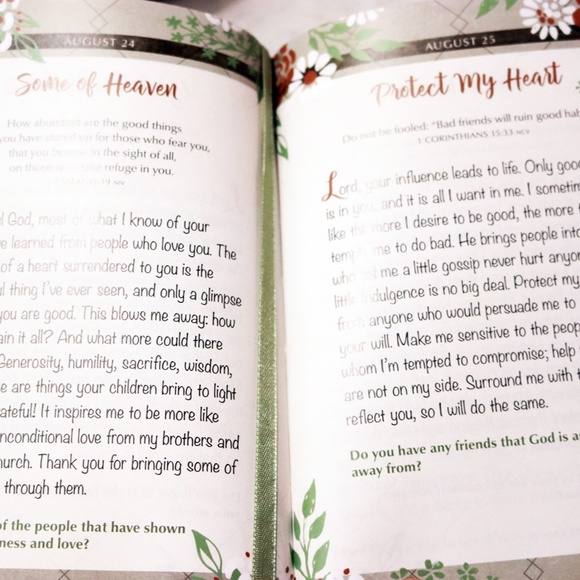 AUGUST 24
Some of Heaven
How abundant are the good things
you have stored up for those who fear you,
that you bestow in the sight of all,
on those who take refuge in you.
31:19 NIV
God, most of what I know of your
learned from people who love you. The
of a heart surrendered to you is the
thing I've ever seen, and only a glimpse
you are good. This blows me away: how
it all? And what more could there
Generosity, humility, sacrifice, wisdom,
are things your children bring to light
It inspires me to be more like
unconditional love from my brothers and
Thank you for bringing some of
through them.
of the people that have shown
and love?
AUGUST 25
Protect My Heart
Do not be fooled: "Bad friends will ruin good
1 CORINTHIANS 15:33 NCV
Lord, your influence leads to life. Only
is in you, and it is all I want in me. I
like the more I desire to be good, the more
me to do bad. He brings people into
me a little gossip never hurt
little indulgence is no big deal. Protect my
from anyone who would persuade me to
your will. Make me sensitive to the
whom I'm tempted to compromise; help
are not on my side. Surround me with
reflect you, so I will do the same.
Do you have any friends that God is
away from?